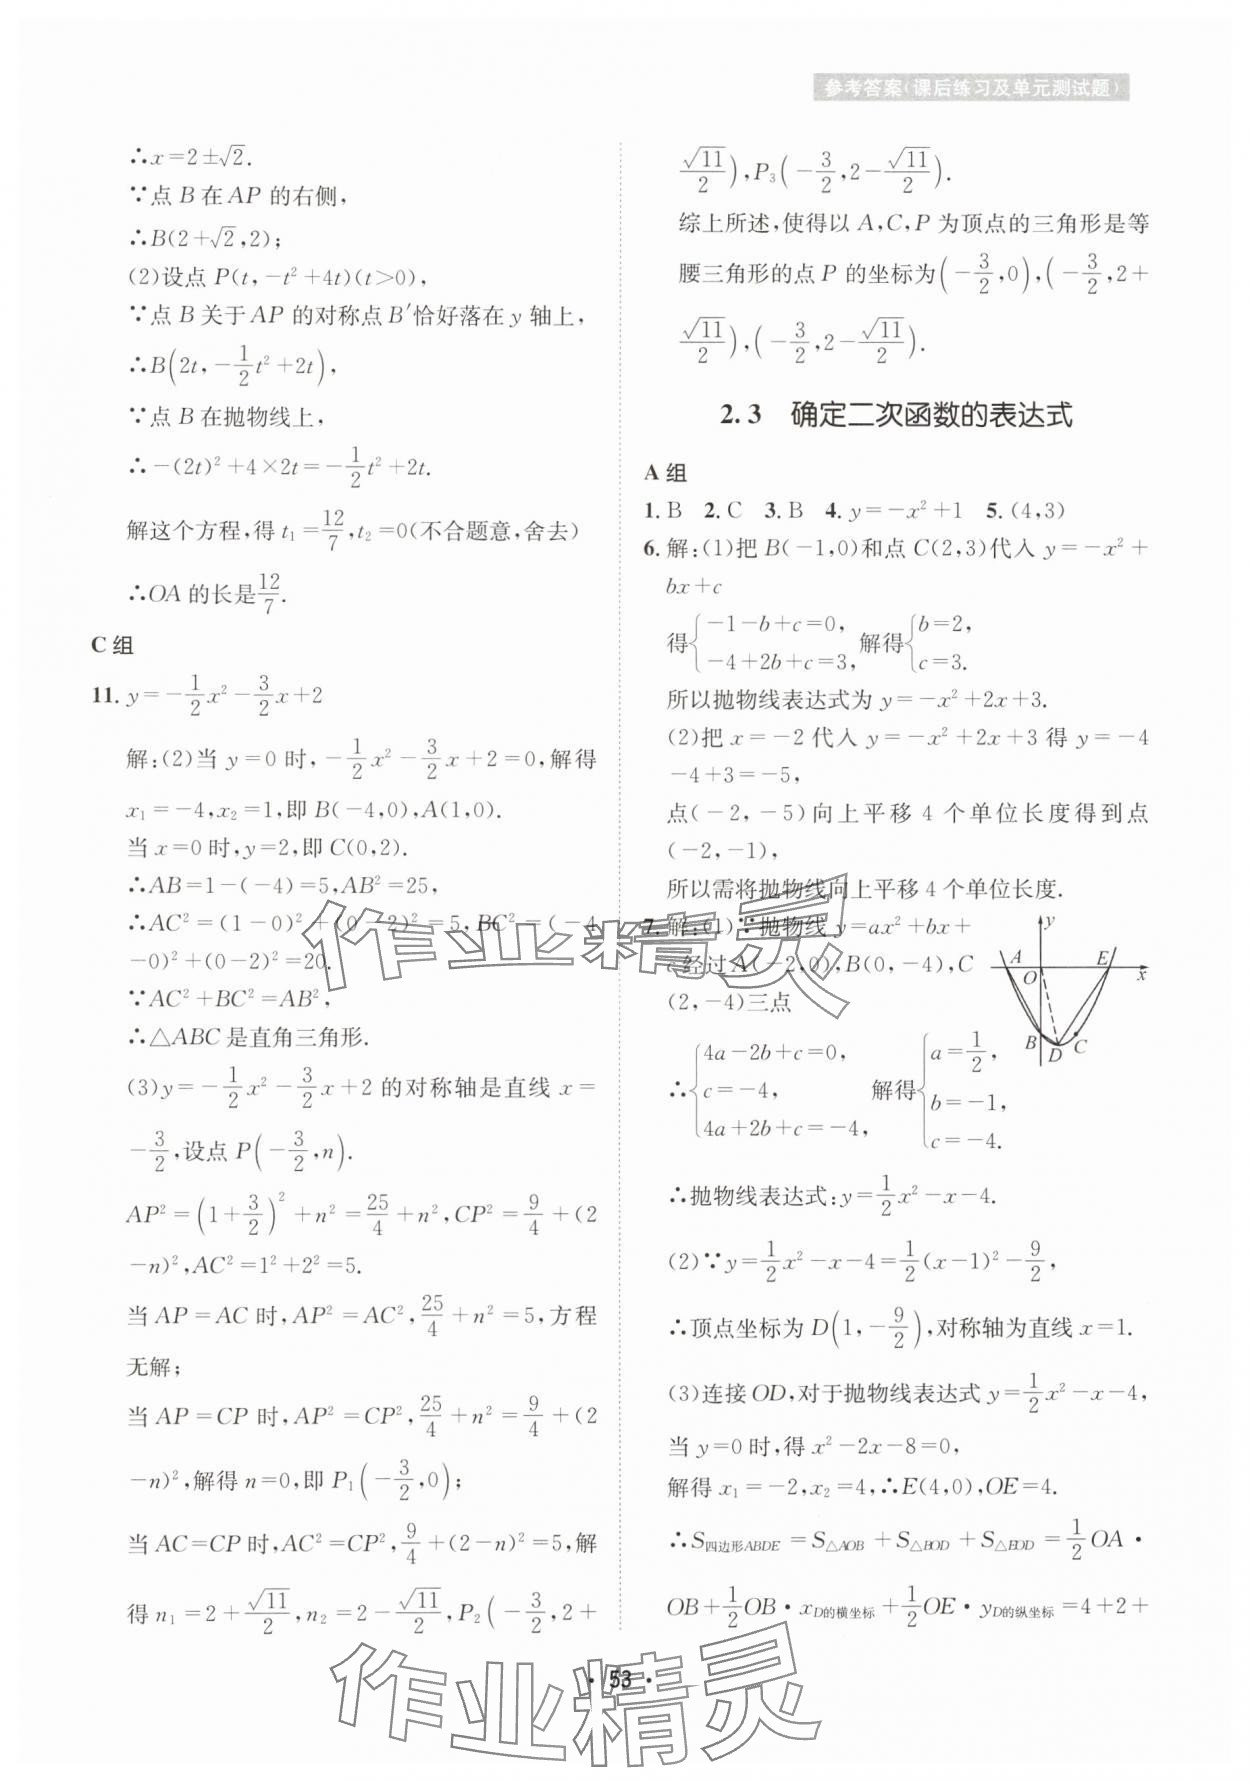 参考答案(课后练习及单元测试题)
∴x=2±√2.
∵点 B 在 AP 的右侧,
∴B(2+√2,2);
(2)设点 P(t,-t²+4t)(t>0),
∵点 B 关于 AP 的对称点 B′恰好落在 y 轴上,
∴B(2t,-1/2t²+2t),
∵点 B 在抛物线上,
∴-(2t)²+4×2t=-1/2t²+2t.
解这个方程,得 t₁=12/7,t₂=0(不合题意,舍去)
∴OA 的长是12/7.
C 组
11. y=-1/2x²-3/2x+2
解:(2)当 y=0 时,-1/2x²-3/2x+2=0,解得
x₁=-4,x₂=1,即 B(-4,0),A(1,0).
当 x=0 时,y=2,即 C(0,2).
∴AB=1-(-4)=5,AB²=25,
∴AC²=(1-0)²+(0-2)²=5,BC²=(-4
-0)²+(0-2)²=20.
∵AC²+BC²=AB²,
∴△ABC 是直角三角形.
(3)y=-1/2x²-3/2x+2 的对称轴是直线 x=
-3/2,设点 P(-3/2,n).
AP²=(1+3/2)²+n²=25/4+n²,CP²=9/4+(2
-n)²,AC²=1²+2²=5.
当 AP=AC 时,AP²=AC²,25/4+n²=5,方程
无解;
当 AP=CP 时,AP²=CP²,25/4+n²=9/4+(2
-n)²,解得 n=0,即 P₁(-3/2,0);
当 AC=CP 时,AC²=CP²,9/4+(2-n)²=5,解
得 n₁=2+√11/2,n₂=2-√11/2,P₂(-3/2,2+
√11/2),P₃(-3/2,2-√11/2).
综上所述,使得以 A,C,P 为顶点的三角形是等
腰三角形的点 P 的坐标为(-3/2,0),(-3/2,2+
√11/2),(-3/2,2-√11/2).
2.3 确定二次函数的表达式
A 组
1. B 2. C 3. B 4. y=-x²+1 5. (4,3)
6. 解:(1)把 B(-1,0)和点 C(2,3)代入 y=-x²+
bx+c
得{-1-b+c=0, -4+2b+c=3, 解得{b=2, c=3.
所以抛物线表达式为 y=-x²+2x+3.
(2)把 x=-2 代入 y=-x²+2x+3 得 y=-4
-4+3=-5,
点(-2,-5)向上平移 4 个单位长度得到点
(-2,-1),
所以需将抛物线向上平移 4 个单位长度.
7. 解:(1)∵抛物线 y=ax²+bx+
c 经过 A(-2,0),B(0,-4),C
(2,-4)三点
y
A
E
O
x
B
D
C
∴{4a-2b+c=0, c=-4, 4a+2b+c=-4, 解得{a=1/2, b=-1, c=-4.
∴抛物线表达式:y=1/2x²-x-4.
(2)∵y=1/2x²-x-4=1/2(x-1)²-9/2,
∴顶点坐标为 D(1,-9/2),对称轴为直线 x=1.
(3)连接 OD,对于抛物线表达式 y=1/2x²-x-4,
当 y=0 时,得 x²-2x-8=0,
解得 x₁=-2,x₂=4,∴E(4,0),OE=4.
∴S四边形ABDE=S△AOB+S△BOD+S△EOD=1/2OA·
OB+1/2OB·xD的横坐标+1/2OE·yD的纵坐标=4+2+
·53·
作业精灵
作业精灵